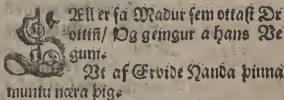 Sæll er sa Madur sem ottast Dr
ottin/ Og geingur a hans Ve
gum.
Vt af Ervide Handa þinna
muntu næra þig.